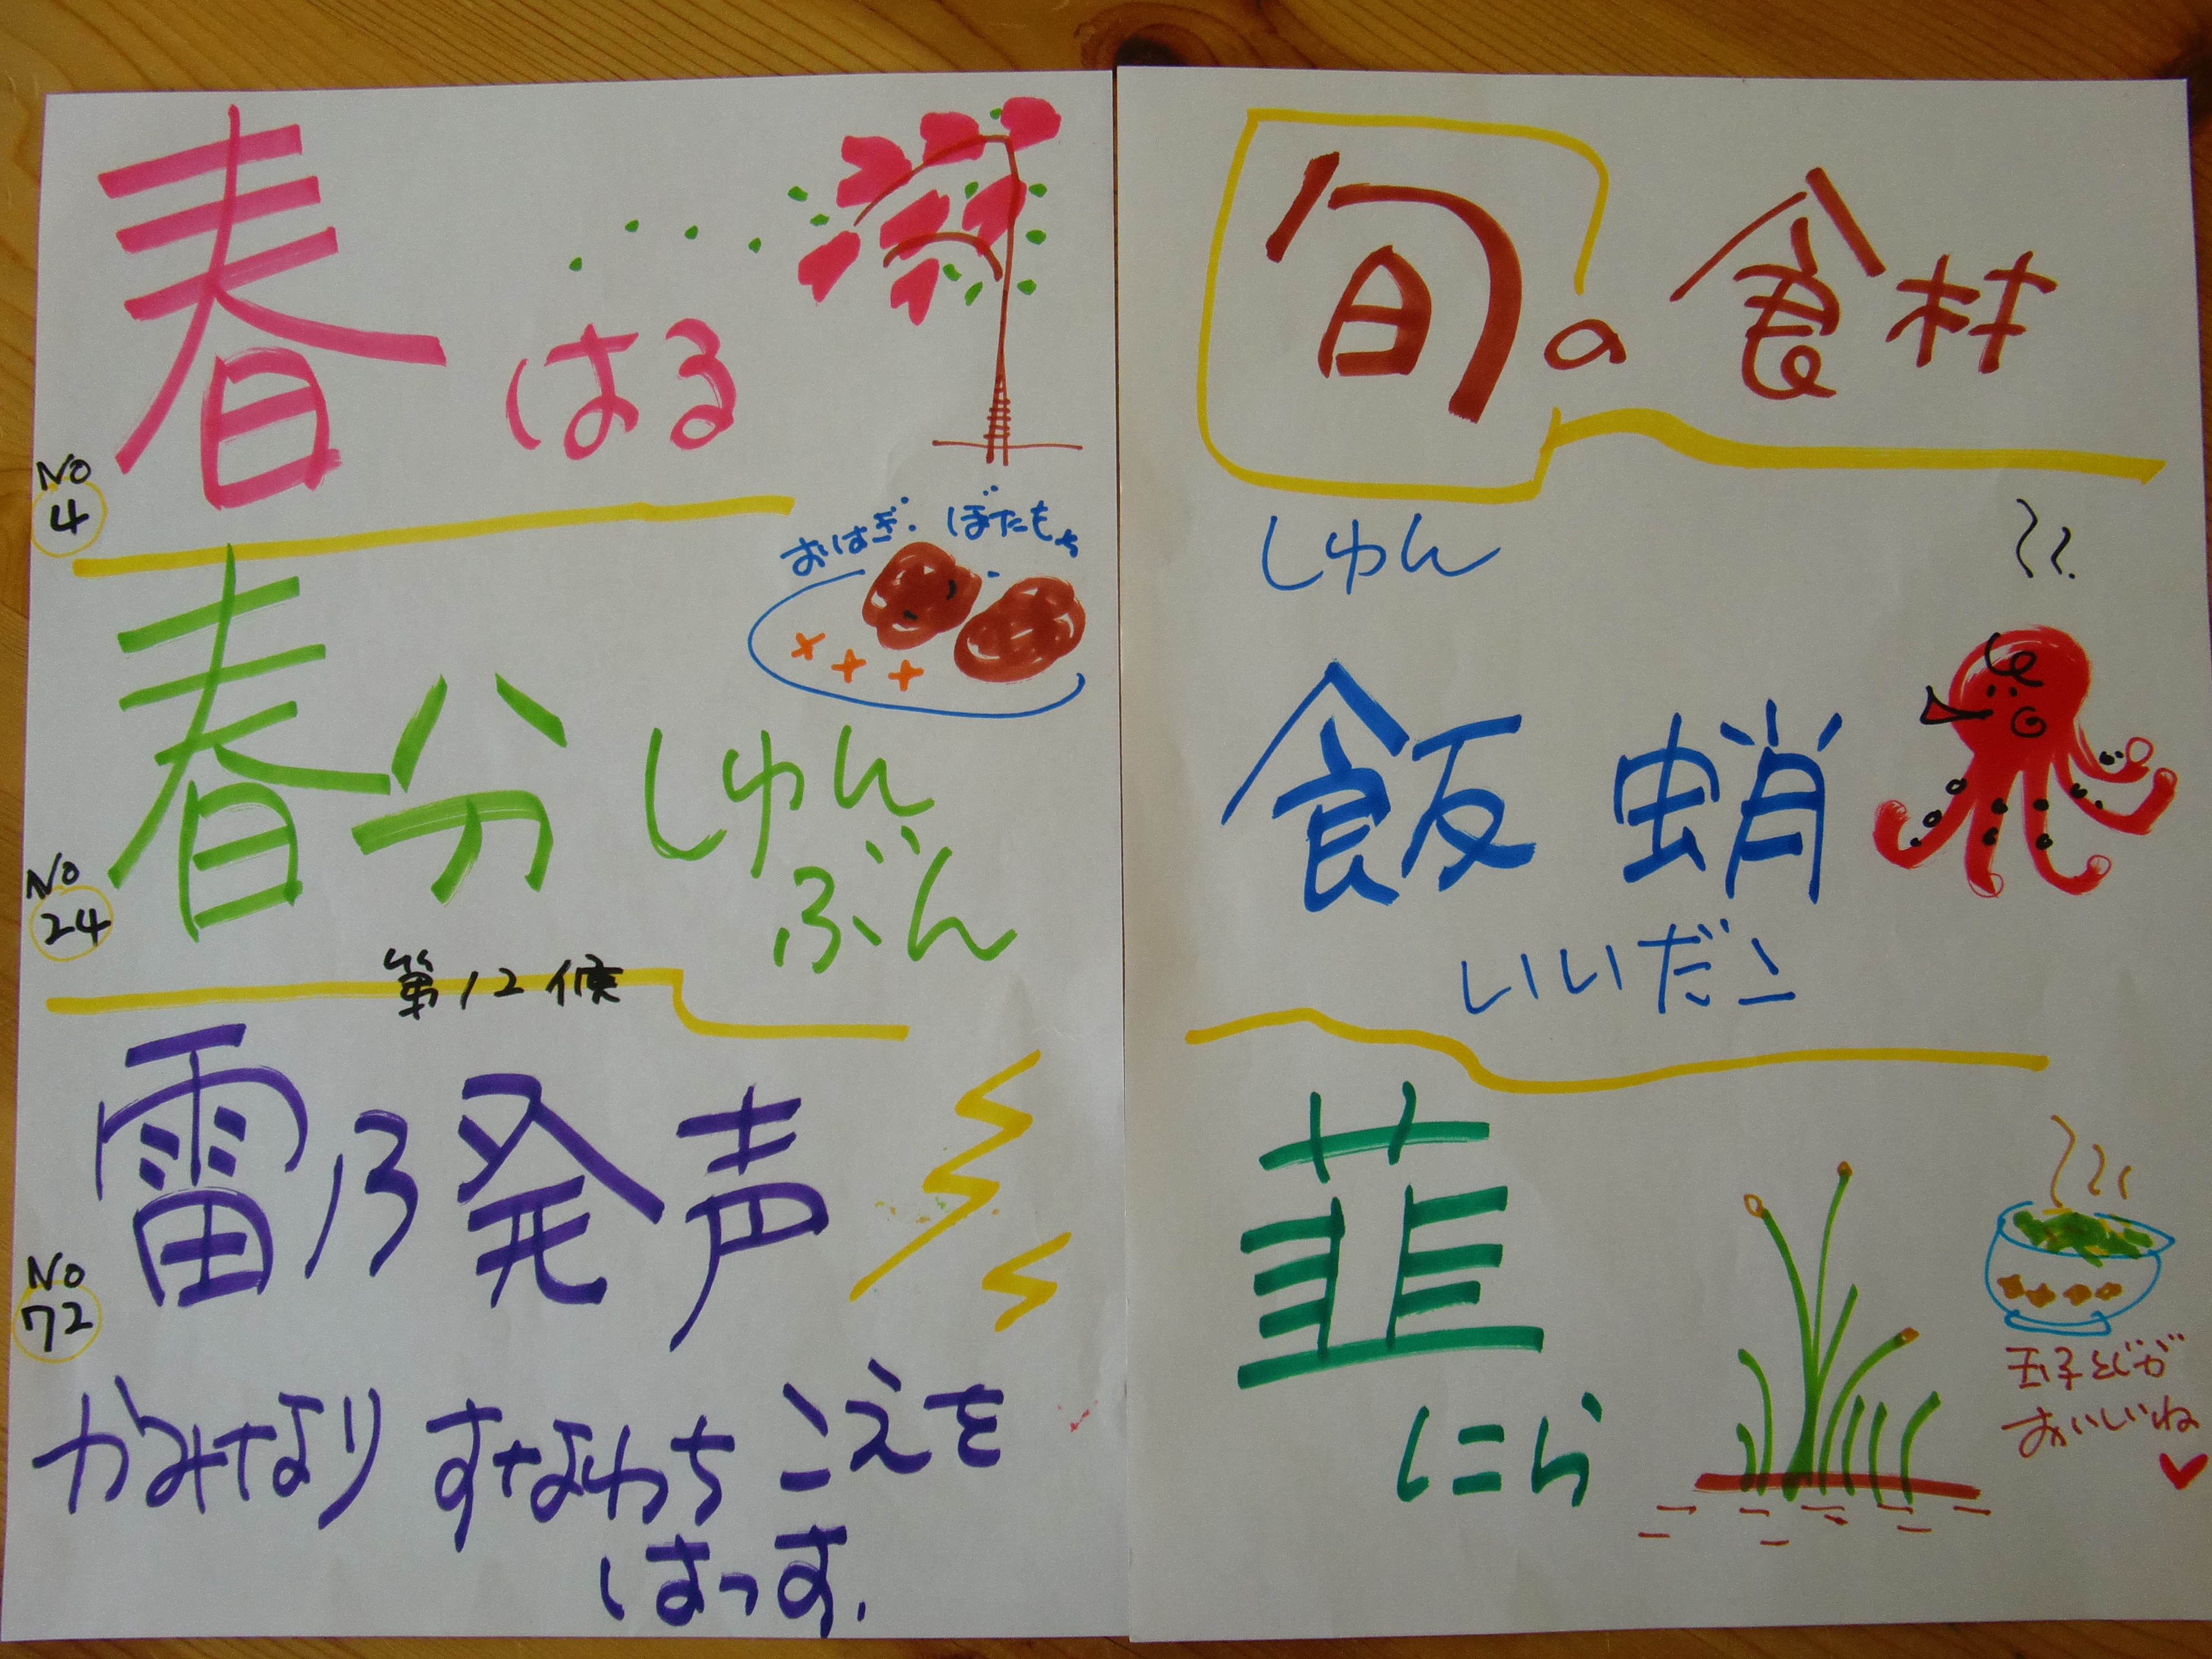 春 はる
No
4
おはぎ. ぼたもち
春分 しゅん
ぶん
No
24
第12候
雷乃発声
No
72
かみなり すなわち こえを
はっす.
旬の食材
しゅん
飯蛸
いいだこ
韮
にら
玉子とじが
おいしいね